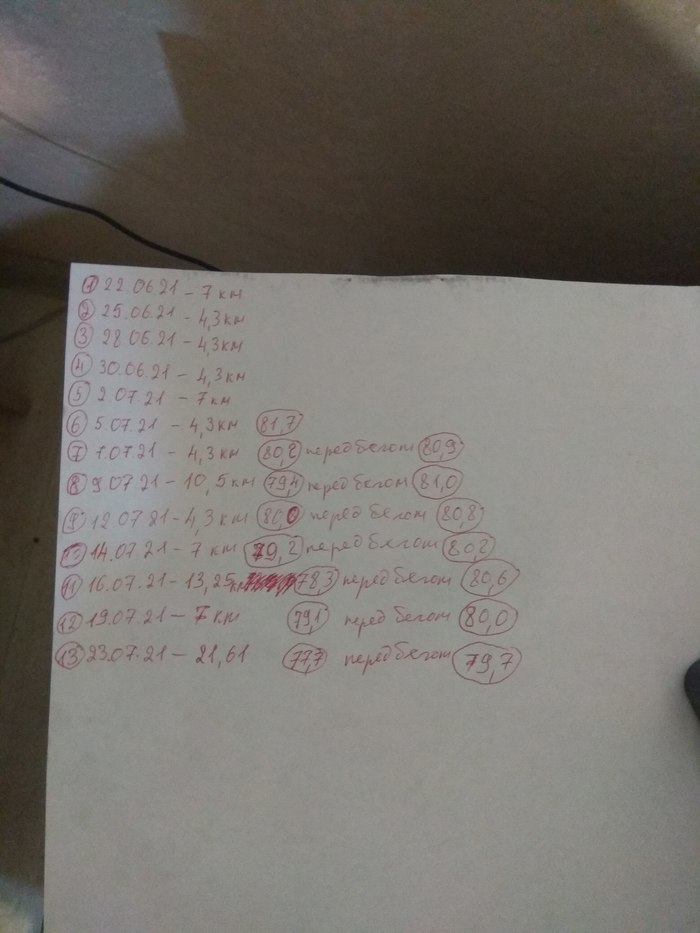 1 22.06.21 - 7 км
2 25.06.21 - 4,3 км
3 28.06.21 - 4,3 км
4 30.06.21 - 4,3 км
5 2.07.21 - 7 км
6 5.07.21 - 4,3 км 81,7
7 7.07.21 - 4,3 км 80,2 перед бегом 80,9
8 9.07.21 - 10,5 км 79,4 перед бегом 81,0
9 12.07.21 - 4,3 км 80,0 перед бегом 80,8
10 14.07.21 - 7 км 79,2 перед бегом 80,2
11 16.07.21 - 13,25 км 78,3 перед бегом 80,6
12 19.07.21 - 7 км 79,1 перед бегом 80,0
13 23.07.21 - 21,61 77,7 перед бегом 79,7